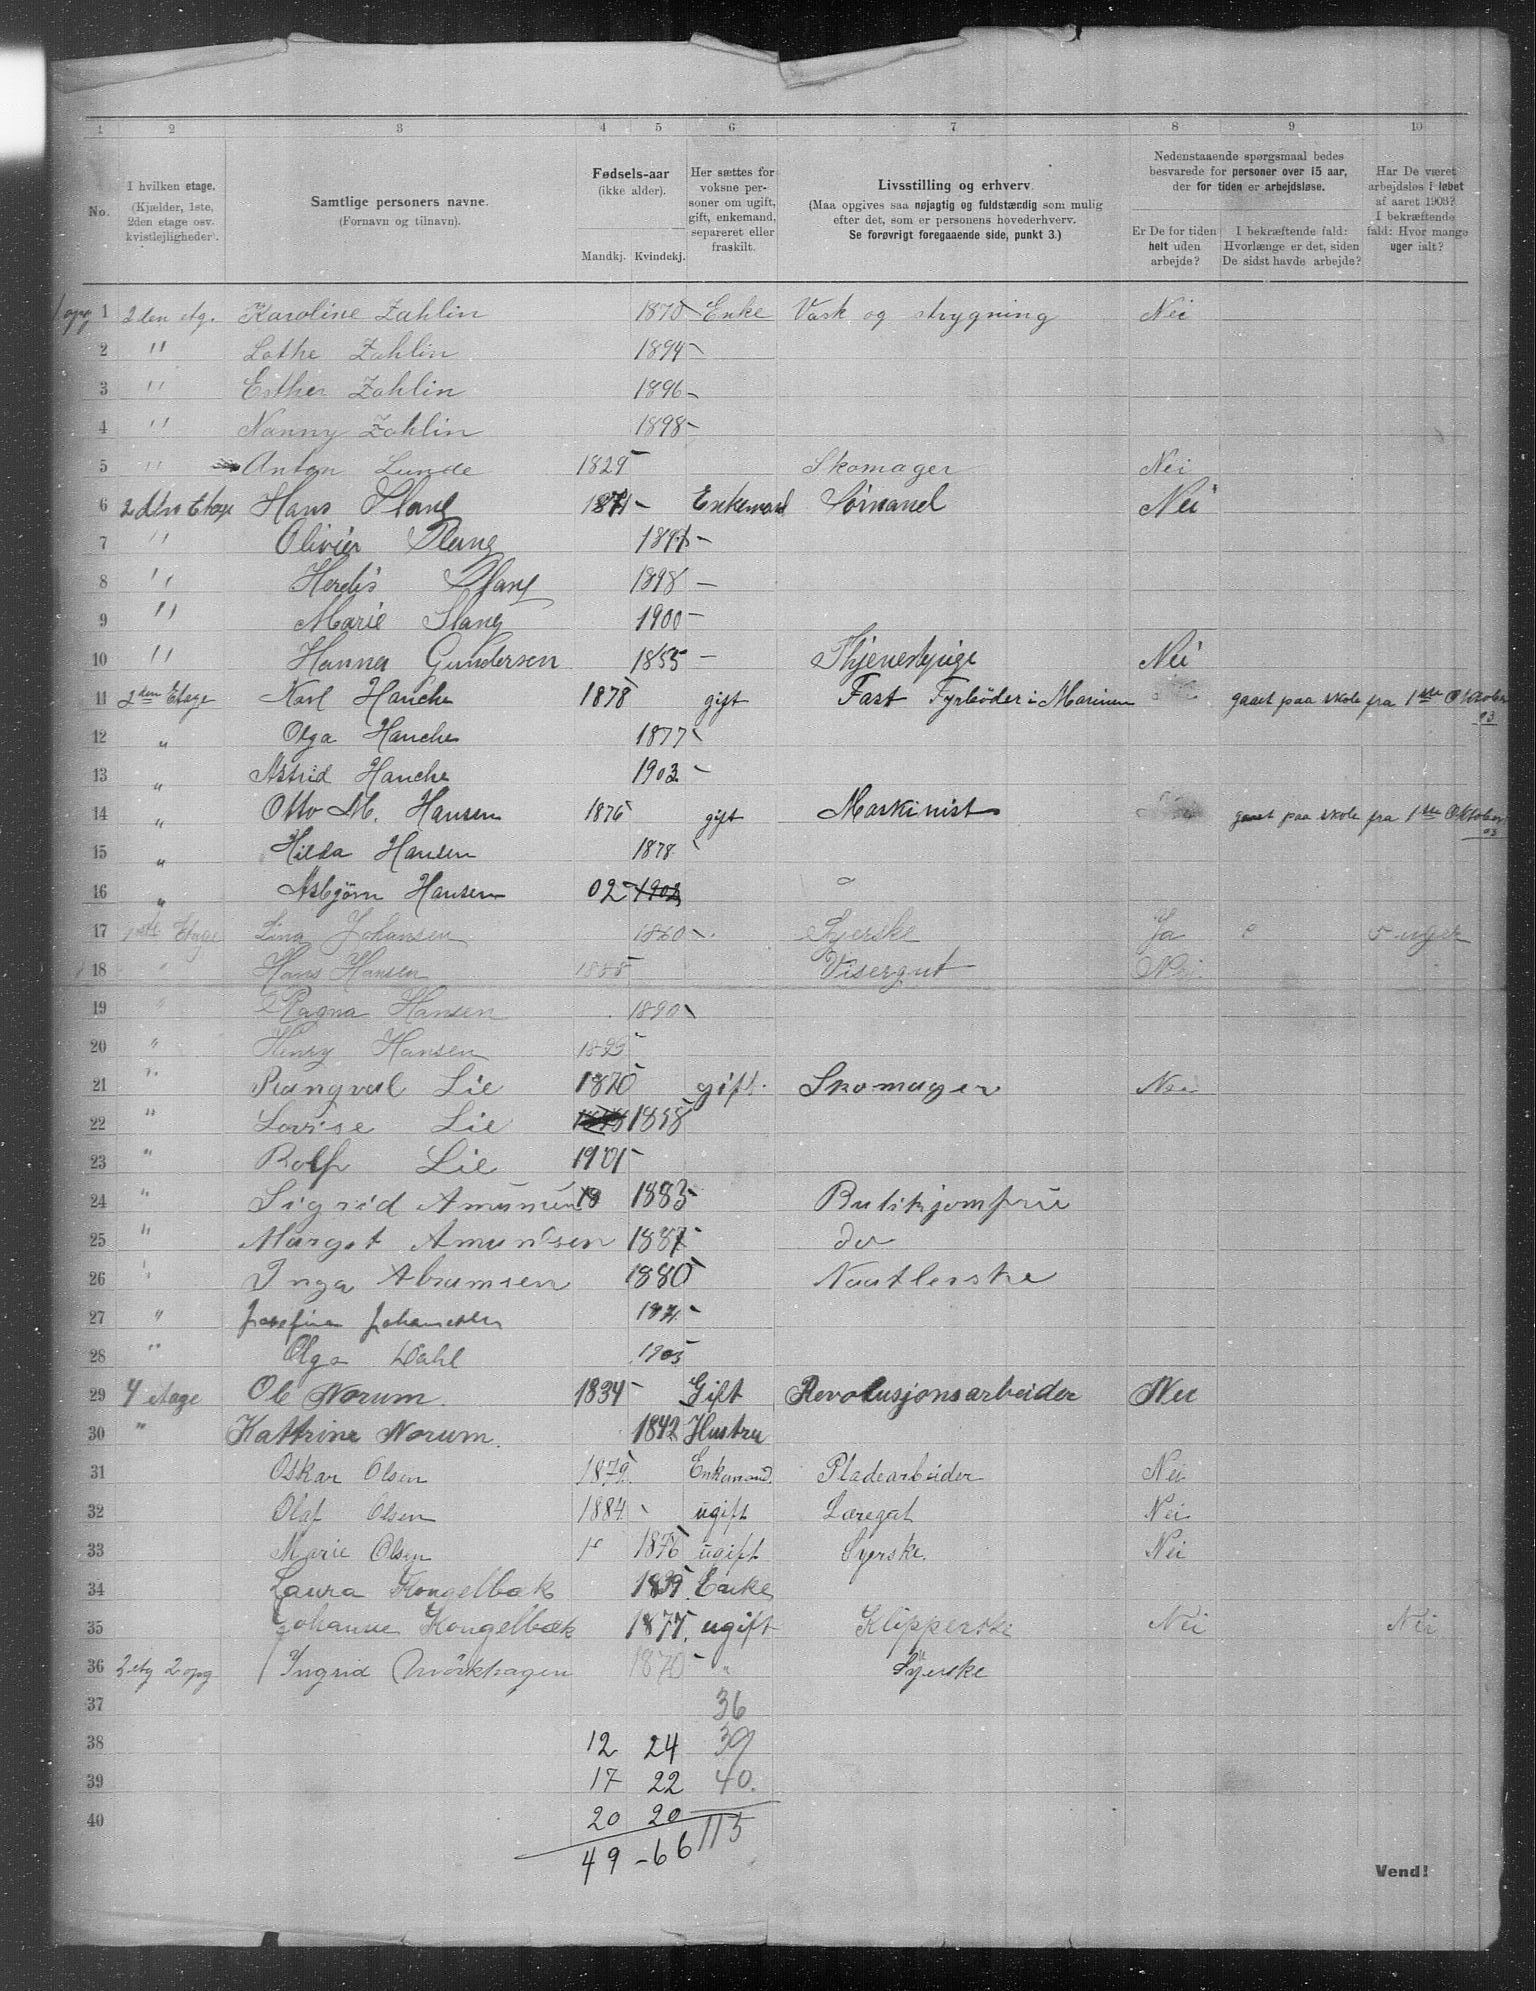 1 2 3 4 5 6 7 8 9 10
No.
I hvilken etage. (Kjælder, 1ste, 2den etage osv. kvistleiligheder).
Samtlige personers navne. (Fornavn og tilnavn).
Fødsels-aar (ikke alder). Mandkj. Kvindekj.
Her sættes for voksne personer om ugift, gift, enkemand, separeret eller fraskilt.
Livsstilling og erhverv. (Maa opgives saa nøjagtig og fuldstændig som mulig efter det, som er personens hovederhverv. Se forøvrigt foregaaende side, punkt 3.)
Nedenstaaende spørgsmaal bedes besvarede for personer over 15 aar, der for tiden er arbejdsløse.
Er De for tiden helt uden arbejde?
I bekræftende fald: Hvorlænge er det, siden De sidst havde arbejde?
Har De været arbejdsløs i løbet af aaret 1903? I bekræftende fald: Hvor mange uger ialt?
1 opg 1 2den etg. Karoline Zahlin 1870 Enke Vask og strygning Nei
2 " Lothe Zahlin 1894
3 " Esther Zahlin 1896
4 " Nanny Zahlin 1898
5 " Anton Lunde 1829 Skomager Nei
6 2den Etage Hans Slang 1871 Enkemand Sømand Nei
7 " Olivier Slang 1897
8 " Herdis Slang 1898
9 " Marie Slang 1900
10 " Hanna Gundersen 1855 Thjenestpige Nei
11 2den Etage Karl Hanche 1878 gift Fast Fyrbøder i Marinen gaaet paa skole fra 1ste Oktober 03
12 " Olga Hanche 1877
13 " Astrid Hanche 1903
14 " Otto M. Hansen 1876 gift Maskinist gaaet paa skole fra 1ste Oktober 03
15 " Hilda Hansen 1878
16 " Asbjørn Hansen 02 1902
17 1ste Etage Lina Johansen 1860 Syerske Ja uger
18 " Hans Hansen 1888 Visergut Nei
19 " Ragna Hansen 1890
20 " Henry Hansen 1895
21 " Rangval Lie 1870 gift Skomager Nei
22 " Lovise Lie 1858
23 " Rolf Lie 1901
24 " Sigrid Amunsen 18 1883 Butikjomfru
25 " Margot Amunsen 1887 do
26 " Inga Abramsen 1880 Naatlerske
27 " Josefine Johannesen 1871
28 " Olga Dahl 1903
29 4 etage Ole Norum 1834 Gift Revolusjonsarbeider Nei
30 " Kattrine Norum. 1842 Hustru
31 Oskar Olsen 1879. Enkemand. Pladearbeider Nei
32 Olaf Olsen 1884 ugift Læregut Nei
33 Marie Olsen 1876 ugift Syerske. Nei
34 Laura Kongelbæk 1839. Enke
35 Johanne Kongelbæk 1877. ugift Klipperske Nei Nei
36 2 etg 2 opg Ingrid Mörkhagen 1870 " Syerske
37 36
38 12 24 39
39 17 22 40.
40 20 20 115
49 - 66
Vend!